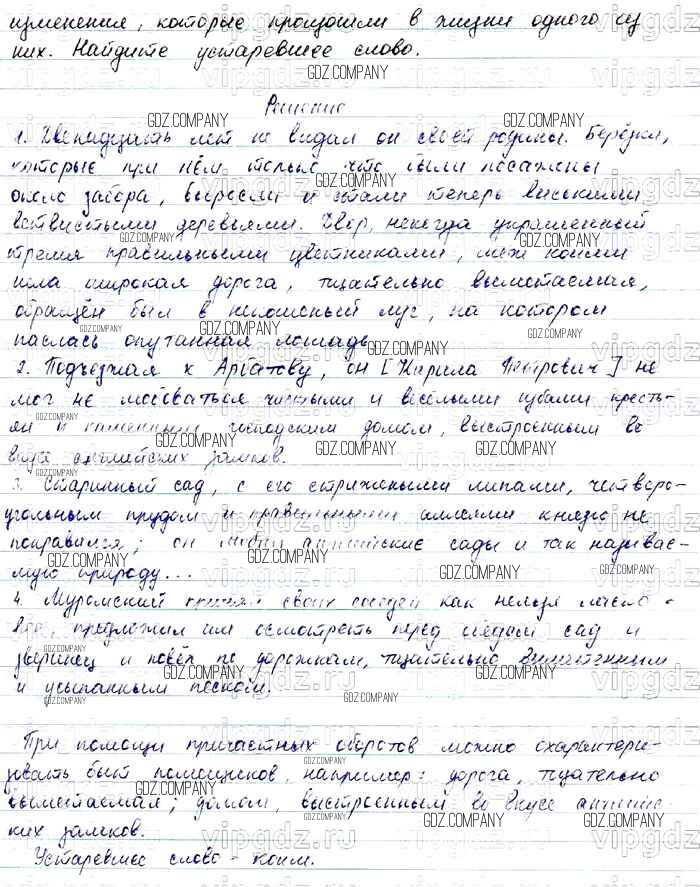 изменения, которые произошли в жизни одного из
них. Найдите устаревшее слово.
Решение
1. Двенадцать лет не видал он своей родины. Берёзки,
которые при нём только что были посажены
около забора, выросли и стали теперь высокими
ветвистыми деревьями. Двор, некогда украшенный
тремя правильными цветниками, меж коими
шла широкая дорога, тщательно выметаемая,
обращён был в некошеный луг, на котором
паслась опутанная лошадь
2. Подъезжая к Арбатову, он [Кирила Петрович] не
мог не любоваться чистыми и весёлыми избами кресть-
ян и каменным господским домом, выстроенным во
вкусе английских замков.
3. Старинный сад, с его стрижеными липами, четверо-
угольным прудом и правильными аллеями князю не
понравился; он любил английские сады и так называе-
мую природу...
4. Муромский принял своих соседей как нельзя ласко-
вее, предложил им осмотреть перед обедом сад и
зверинец и повёл по дорожкам, тщательно выметенным
и усыпанным песком.
При помощи причастных оборотов можно охарактери-
зовать быт помещиков, например: дорога, тщательно
выметаемая; домом, выстроенным во вкусе английс-
ких замков.
Устаревшее слово - коим.
GDZ.COMPANY
vipgdz.ru